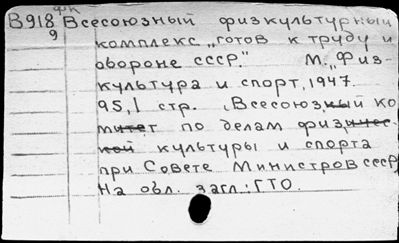 фк
В918 Всесоюзный физкультурный
9 комплекс „готов к труду и
обороне СССР." М., „Физ-
культура и спорт, 1947.
95,1 стр. (Всесоюзный ко
митет по делам физичес.
кой культуры и спорта
при Совете Министров СССР)
На обл. загл.: ГТО.